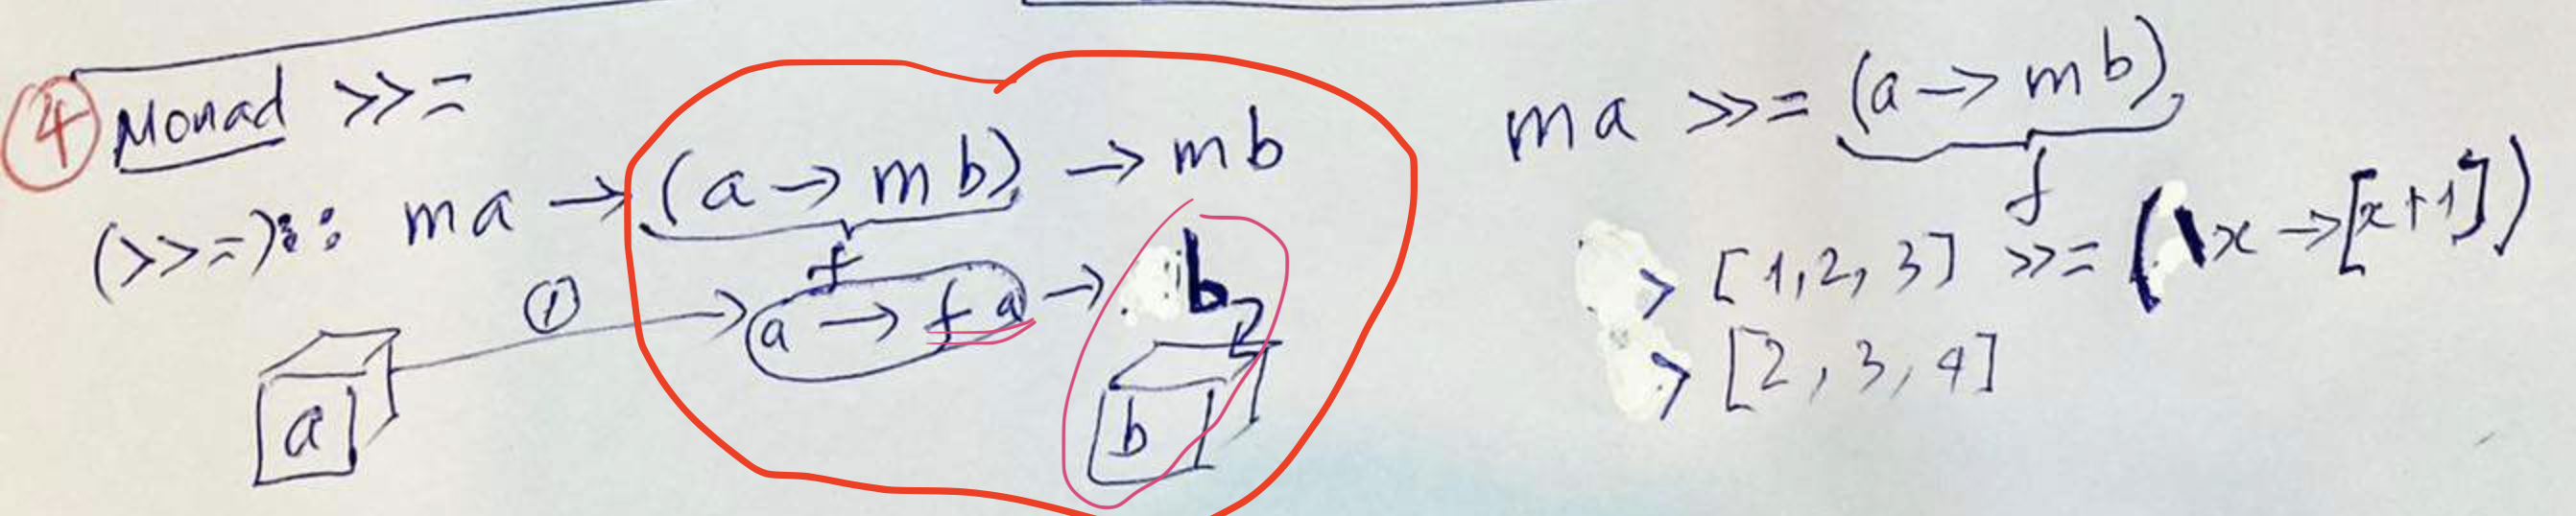 ④ Monad >>=
(>>=) :: ma → (a → mb) → mb
f
①
a → f a → b
a
b
ma >>= (a → mb)
f
> [1,2,3] >>= (\x → [x+1])
> [2,3,4]